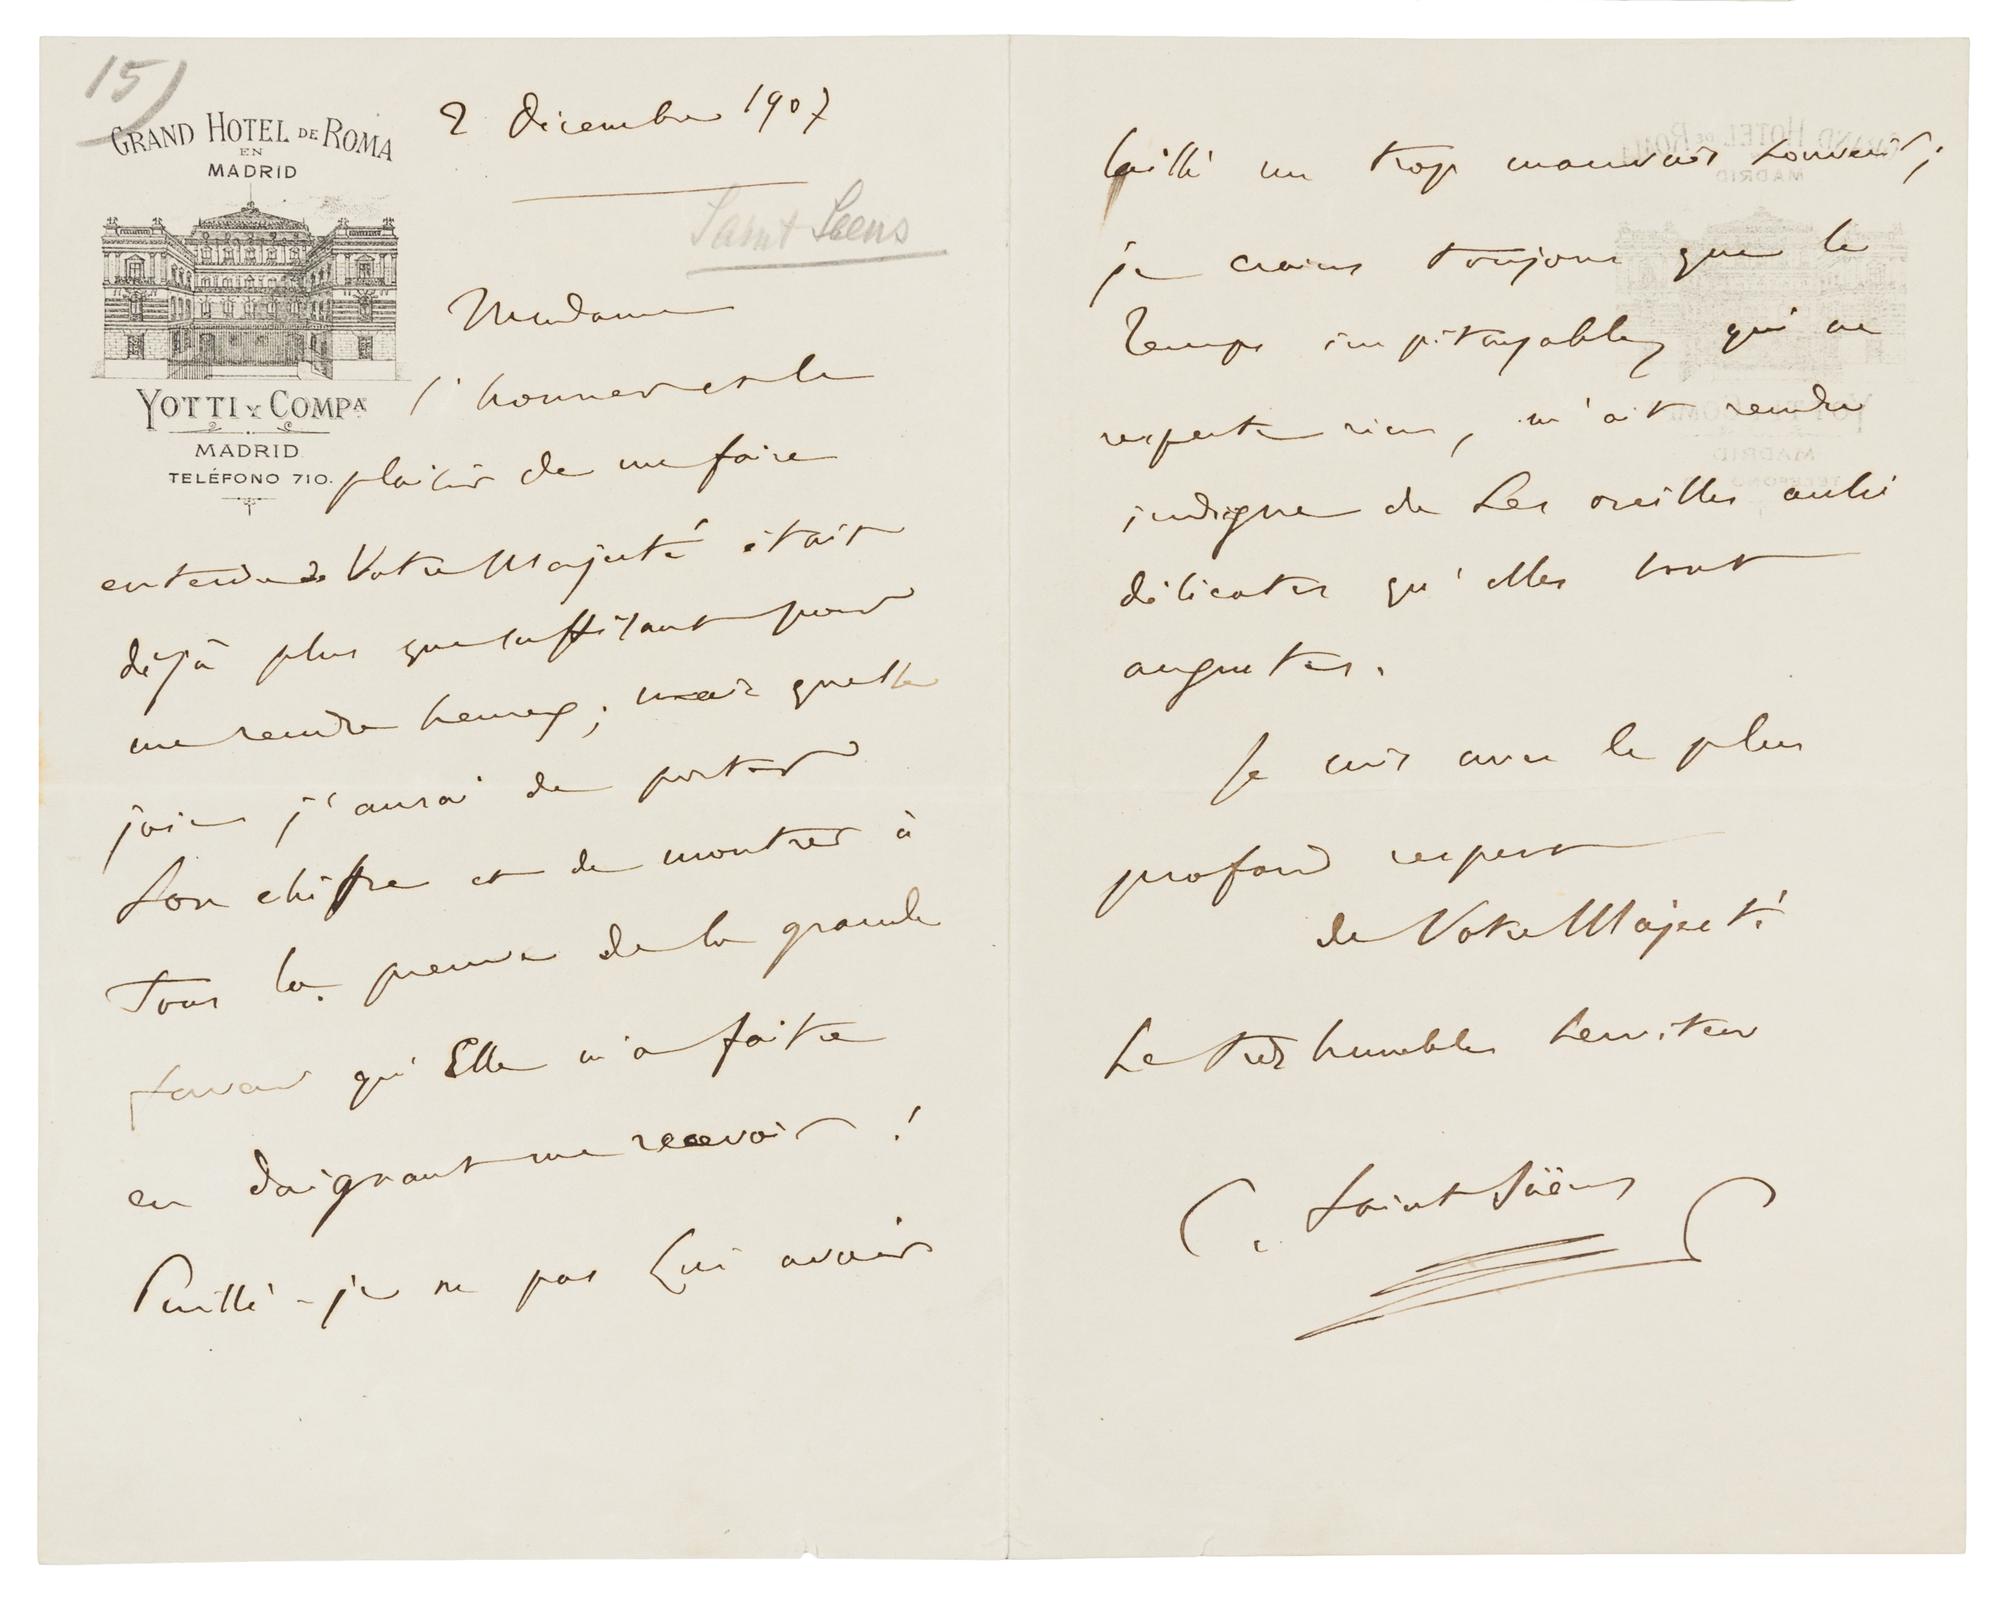 15)
GRAND HOTEL DE ROMA
EN
MADRID
YOTTI Y COMPA.
MADRID
TELÉFONO 710.
2 décembre 1907
Saint Saens
Madame
l'honneur et le
plaisir de me faire
entendre de Votre Majesté était
déjà plus que suffisant pour
me rendre heureux ; mais quelle
joie j'aurai de porter
Son chiffre et de montrer à
Tous la preuve de la grande
faveur qu'Elle m'a faite
en daignant me recevoir !
Puissé-je ne pas Lui avoir
laissé un trop mauvais souvenir ;
je crains toujours que le
Temps impitoyable, qui ne
respecte rien, m'ait rendu
indigne de Ses oreilles aussi
délicates qu'elles sont
augustes.
Je suis avec le plus
profond respect
de Votre Majesté
Le très humble Serviteur
C. Saint-Saëns
GRAND HOTEL DE ROMA
MADRID
YOTTI Y COMPA
MADRID
TELÉFONO